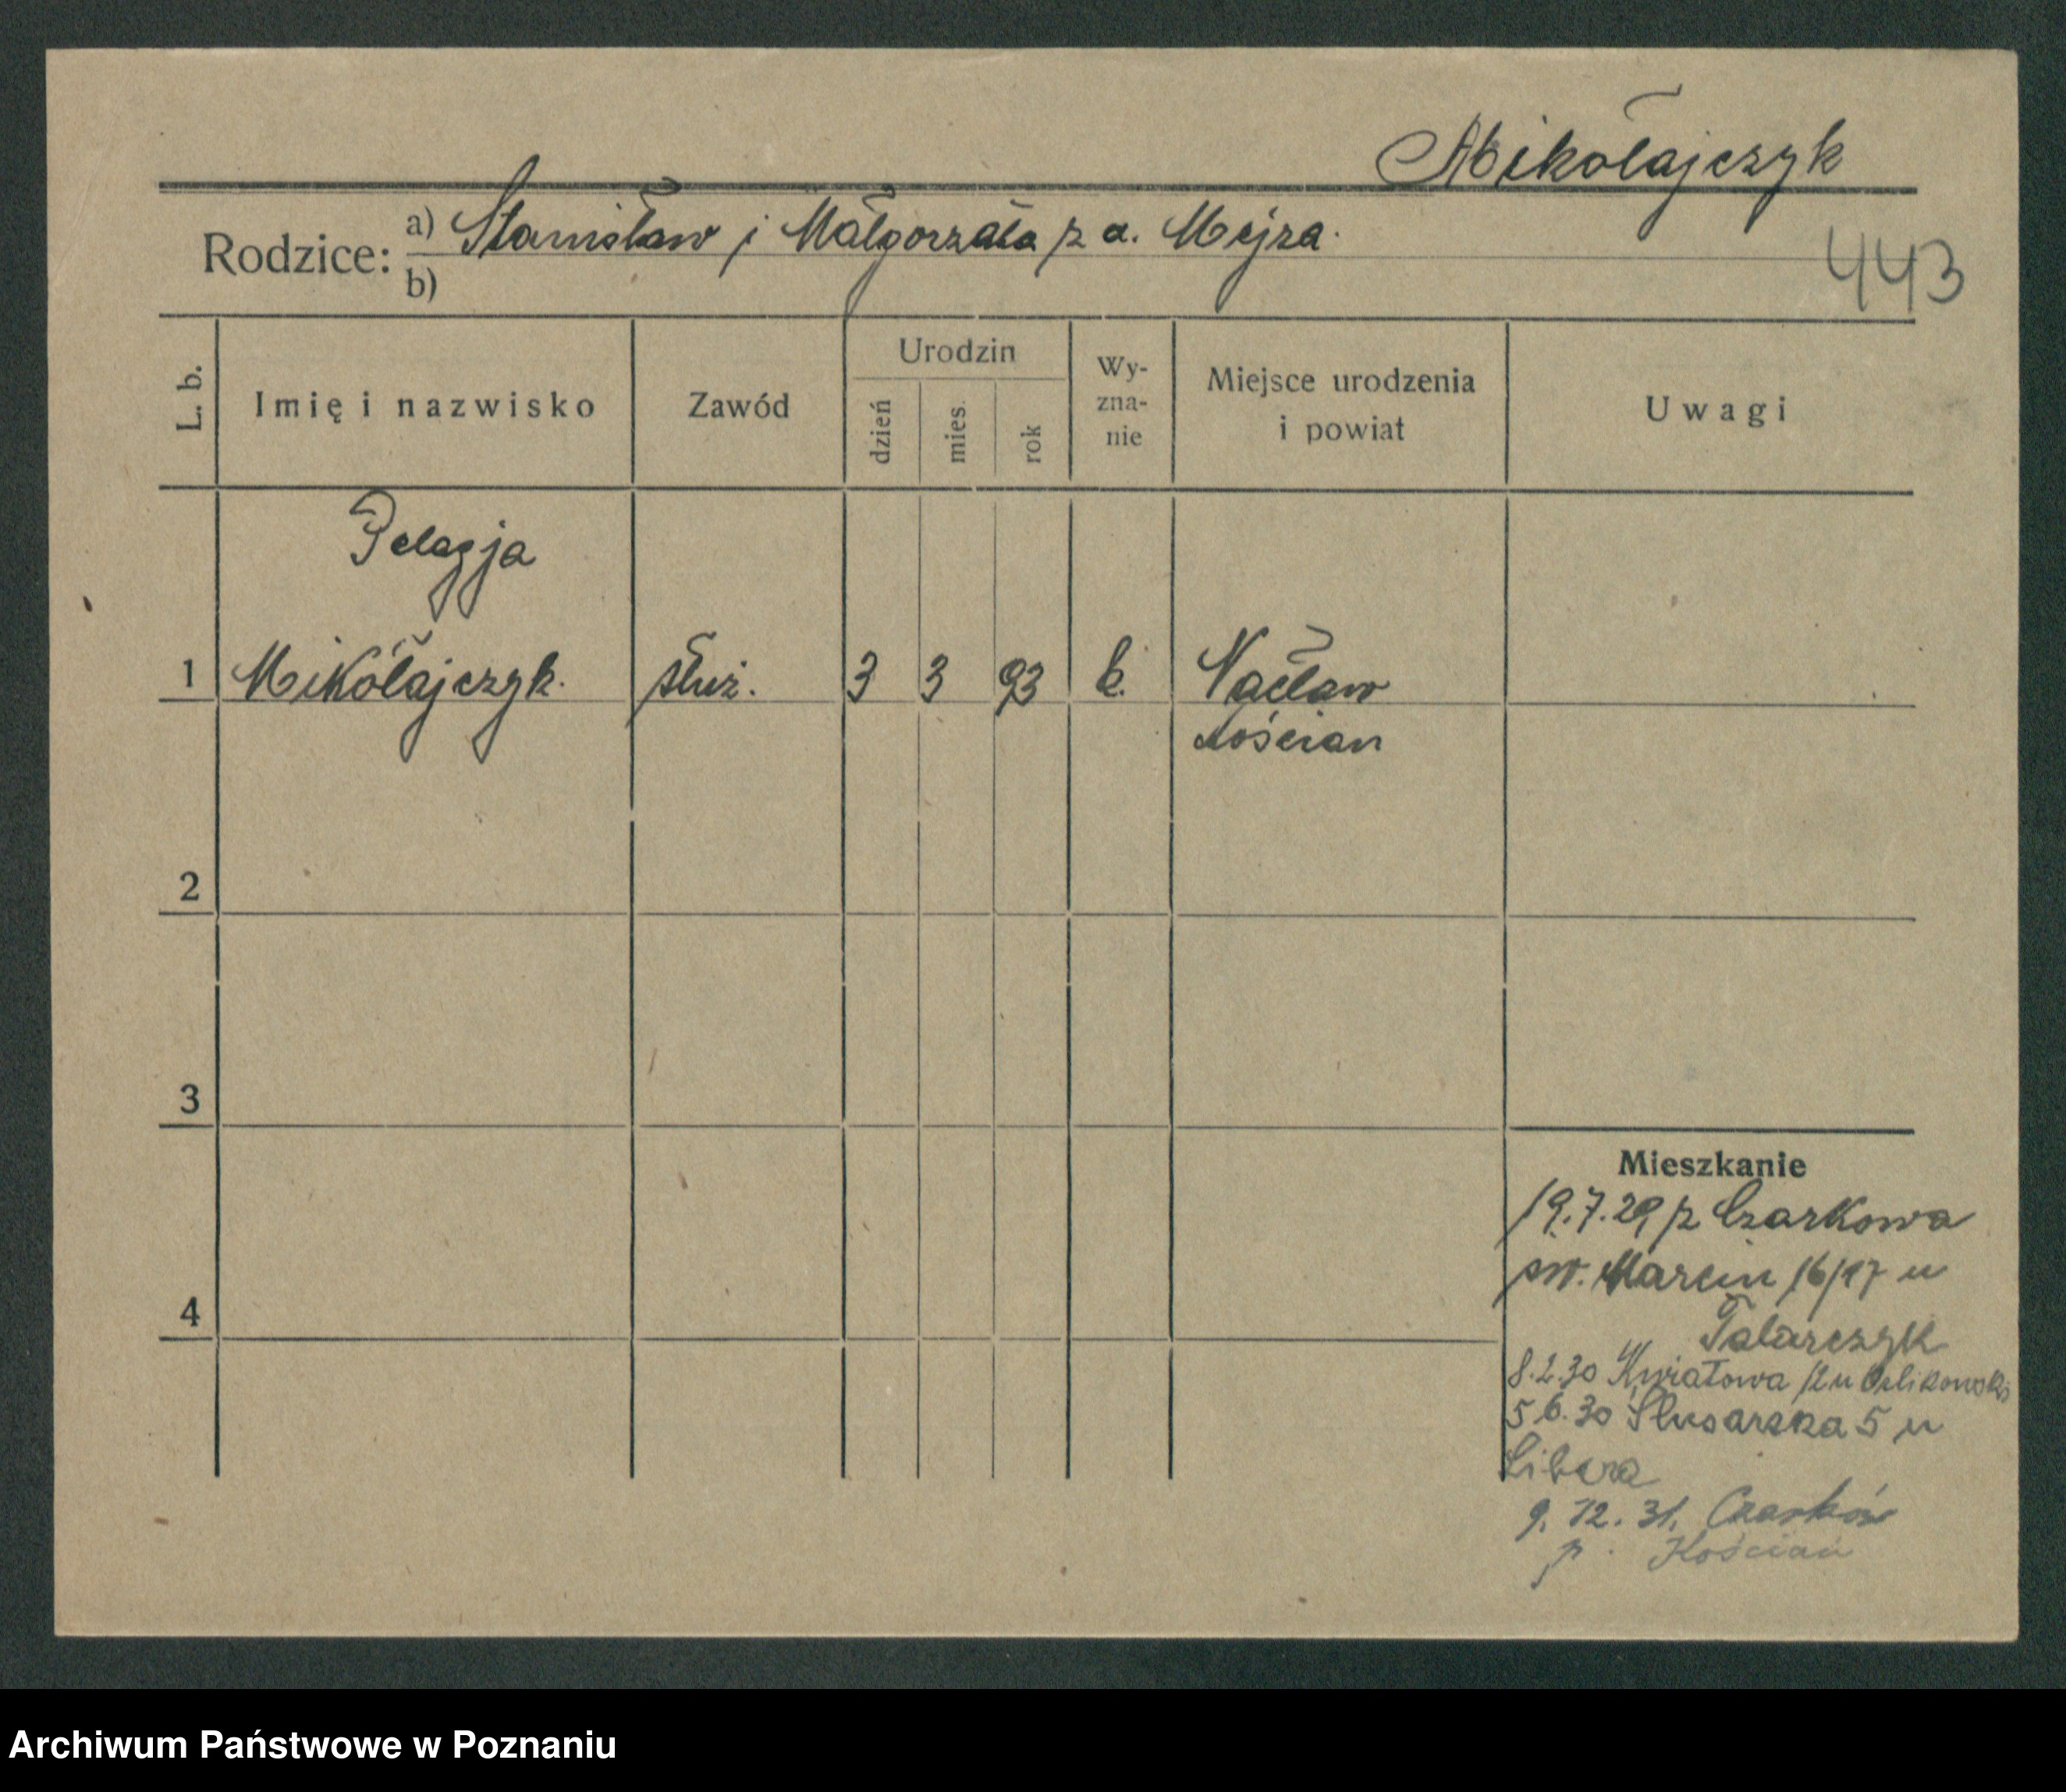 Mikołajczyk
Rodzice: a) Stanisław i Małgorzata z d. Mejza.
b)
443
L. b.
Imię i nazwisko
Zawód
Urodzin
dzień
mies.
rok
Wy-
zna-
nie
Miejsce urodzenia
i powiat
Uwagi
Pelagja
1 Mikołajczyk. służ. 3 3 93 k. Nacław
Kościan
2
3
4
Mieszkanie
19.7.29 z Czarkowa
św. Marcin 16/17 u
Talarczyk
8.2.30 Kwiatowa 12 u
5.6.30 Ślusarska 5 u
Libera
9. 12. 31. Czarków
p. Kościan
Archiwum Państwowe w Poznaniu